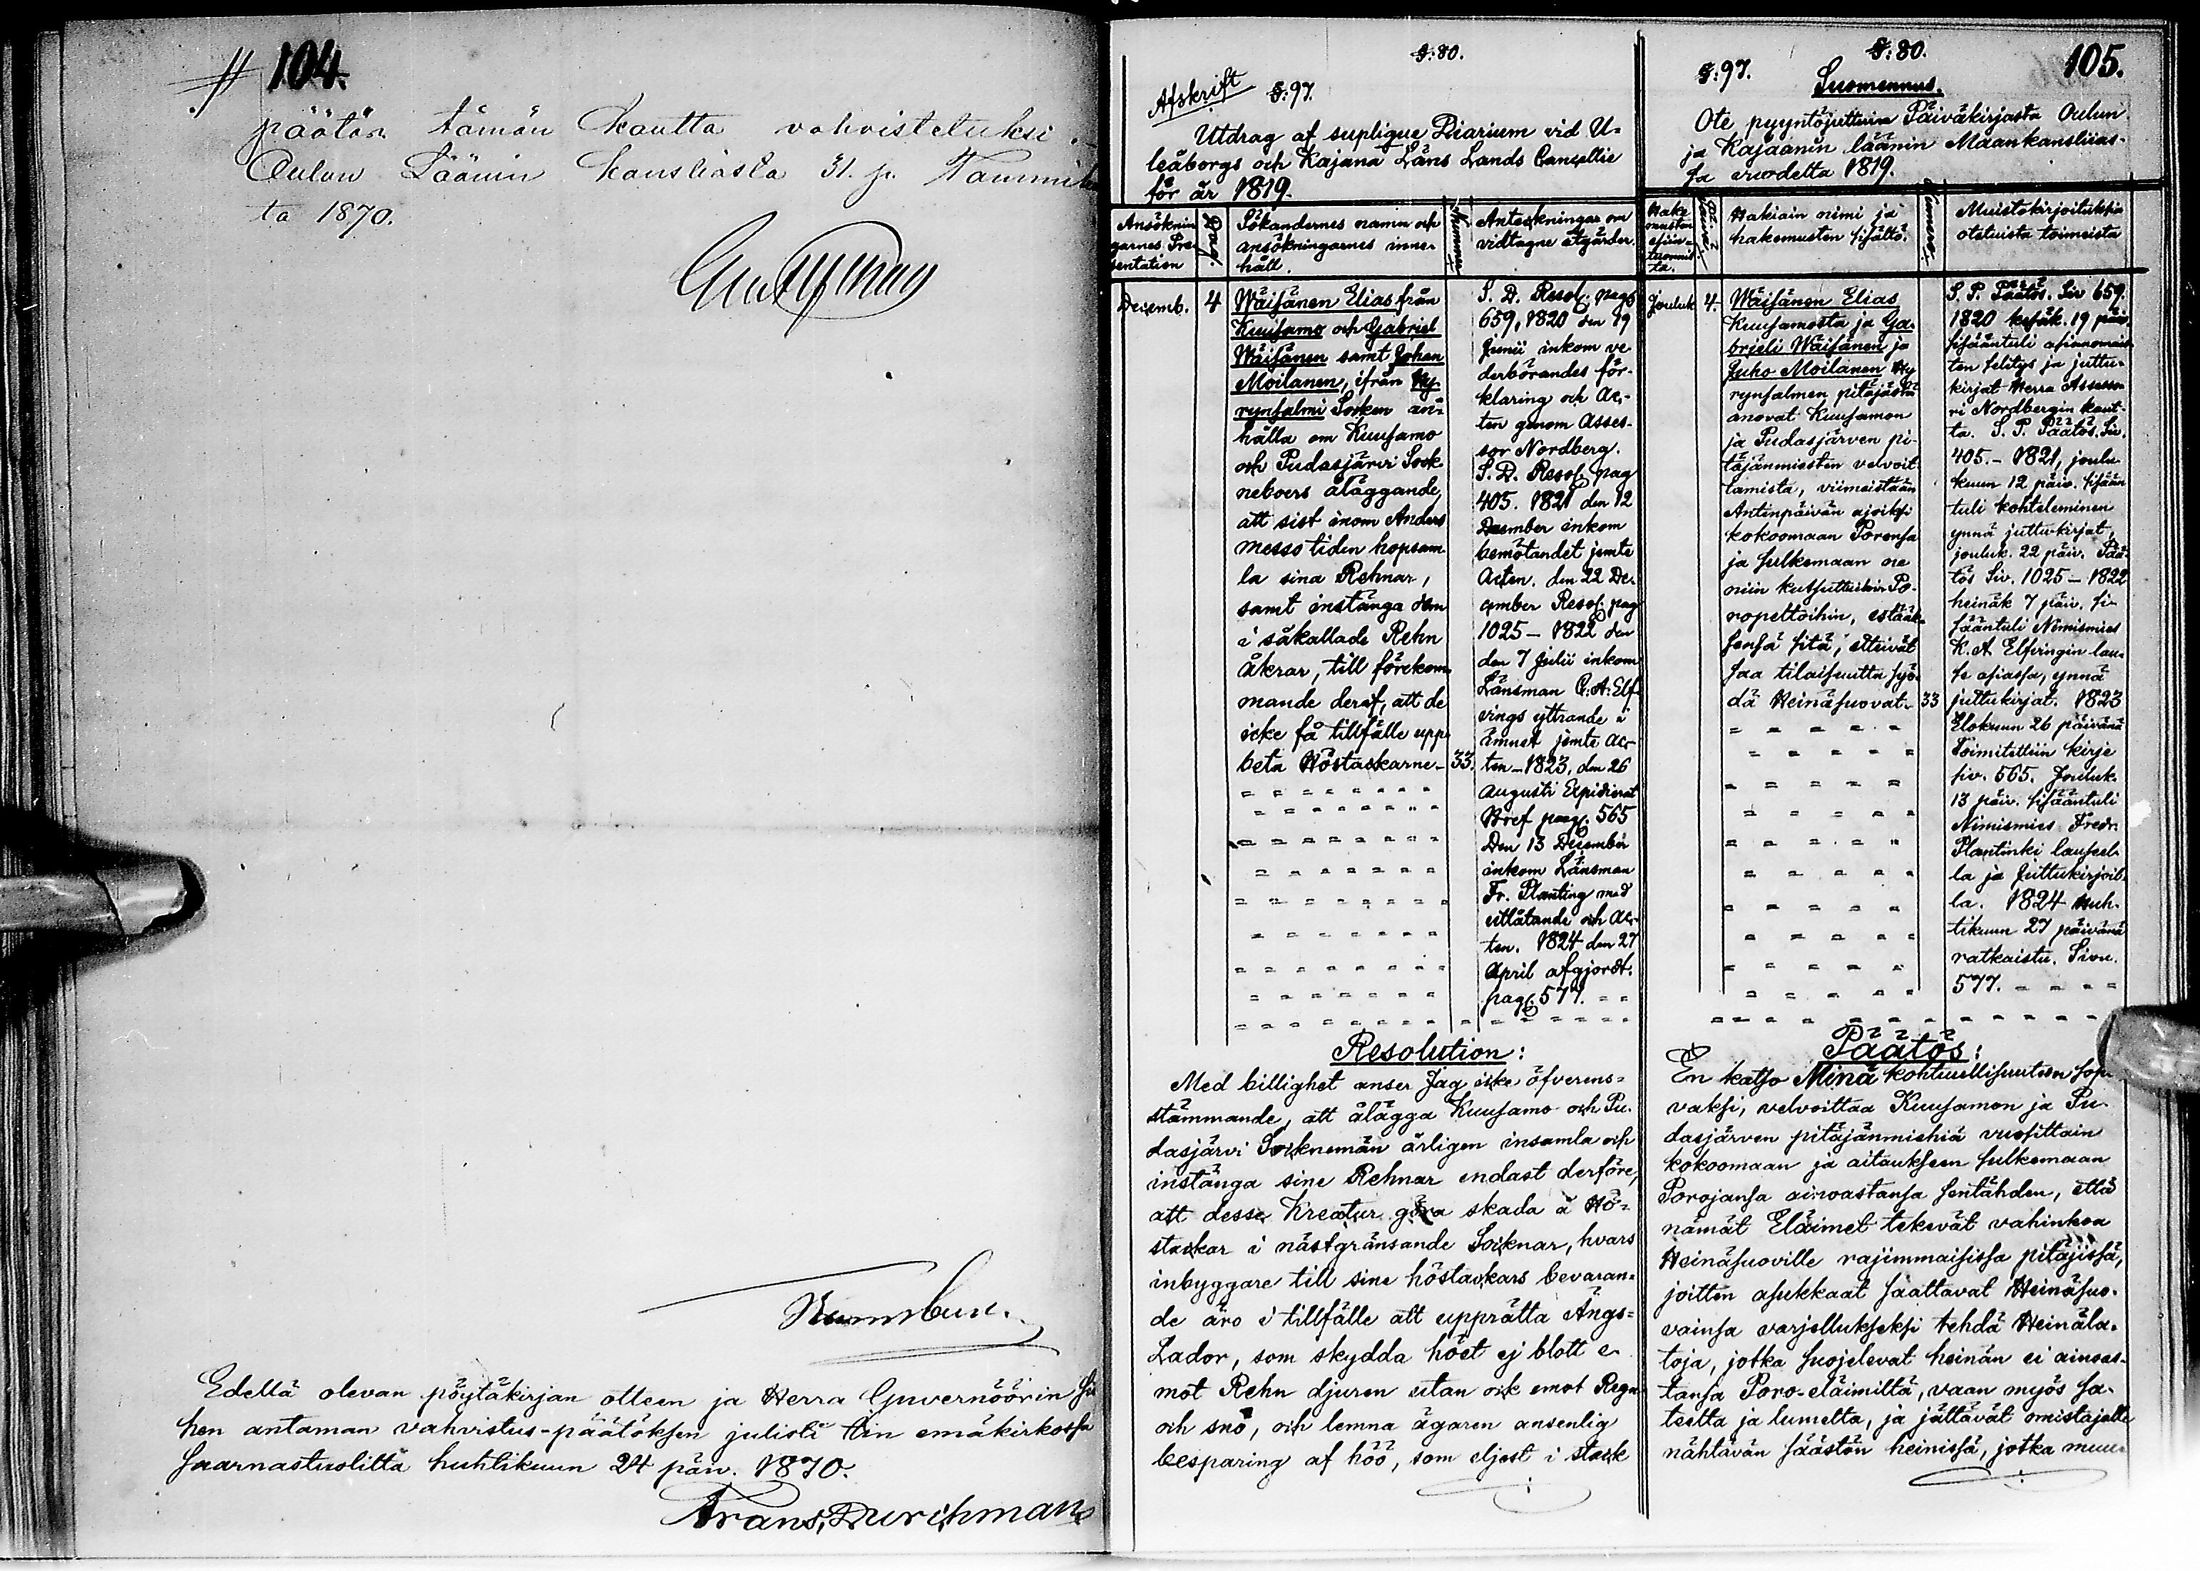 104.
päätän tämän kautta vahvistetuksi.
Oulun Läänin kansliasta 31. p. Tammiku
ta 1870.
Edellä olevan pöytäkirjan olleen ja Herra Guvernöörin sii
hen antaman vahvistus-päätöksen julisti tin emäkirkossa
saarnastuolilta huhtikuun 24 päiv. 1870.
Frans Durchman
§:80.
Afskrift §:97.
Utdrag af suplique Diarium vid U-
leåborgs och Kajana Läns Lands Cancellie
för år 1819.
Ansöknin
garnes Pre-
sentation
Dag.
Sökandernes namn och
ansökningarnes inne-
håll.
Nummer
Anteckningar om
vidtagne åtgärder.
Decemb. 4
Wäisänen Elias från
Kuusamo och Gabriel
Wäisänen samt Johan
Moilanen, ifrån Hy-
rynsalmi Socken an-
hålla om Kuusamo
och Pudasjärvi Sock
neboers åläggande,
att sist inom Anders
messo tiden hopsam
la sina Rehnar,
samt instänga dem
i såkallade Rehn
åkrar, till förekom-
mande deraf, att de
icke få tillfälle upp-
beta Höstackarne - 33.
S. D. Resol. pag.
659, 1820 den 19
Junii inkom ve
derbörandes för-
klaring och Ac-
ten genom Asses-
sor Nordberg.
S. D. Resol. pag
405. 1821 den 12
December inkom
bemötandet jemte
Acten. den 22 De-
cember Resol. pag
1025 - 1822 den
den 7 Julii inkom
Länsman C:A:Elf-
vings yttrande i
ämnet jemte Ac-
ten - 1823, den 26
Augusti Expidierat
Bref pag. 565
Den 13 December
inkom Länsman
Fr. Planting med
utlåtande och Ac-
ten. 1824 den 27
April afgjordt.
pag. 577.
Resolution:
Med billighet anser Jag icke öfverens-
stämmande, att ålägga Kuusamo och Pu-
dasjärvi Socknemän årligen insamla och
instänga sine Rehnar endast derföre,
att desse Kreatur göra skada å Hö-
stackar i nästgränsande Socknar, hvars
inbyggare till sine höstackars bevaran-
de äro i tillfälle att upprätta Ängs-
Lador, som skydda höet ej blott e-
mot Rehn djuren utan ock emot Regn
och snö, och lemna ägaren ansenlig
besparing af höö, som eljest i stack
§:80.
105.
§:97.
Suomennus.
Ote pyyntöjuttuin Päiväkirjasta Oulun
ja Kajaanin läänin Maankansliias-
sa vuodelta 1819.
Hakiain nimi ja
hakemusten sisältö.
Numero.
Muistokirjoituksia
otetuista toimeista
Jouluk 4.
Wäisänen Elias
Kuusamosta ja Ga-
brieli Wäisänen ja
Juho Moilanen Hy
rynsalmen pitäjästä
anovat Kuusamon
ja Pudasjärven pi-
täjänmiesten velvoit
tamista, viimeistään
Antinpäivän ajoiksi
kokoomaan Poronsa
ja sulkemaan ne
niin kutsuttuihin Po-
ropeltoihin, estääk-
sensä sitä, etteivät
saa tilaisuutta syö-
dä Heinäsuovat. 33
S. P. Päätös. Siv 659.
1820 kesäk. 19 päiv.
sisääntuli asianomais
ten selitys ja juttu-
kirjat Herra Assesso
ri Nordbergin kaut-
ta. S. P. Päätös. Siv.
405. - 1821, joulu
kuun 12 päiv. sisään
tuli kohteleminen
ynnä juttukirjat,
jouluk. 22 päiv. Pää-
tös Siv. 1025 - 1822
heinäk 7 päiv. si-
sääntuli Nimismies
K. A Elfvingin lau-
se asiassa, ynnä
juttukirjat. 1823
Elokuun 26 päivänä
Toimitettiin kirje
siv. 565. Jouluk.
13 päiv. sisääntuli
Nimismies Fredr.
Plantinki lauseel-
la ja juttukirjoil-
la. 1824 Huh-
tikuun 27 päivänä
ratkaistu. Sivu.
577.
Päätös:
En katso Minä kohtuullisuuteen sopi-
vaksi, velvoittaa Kuusamon ja Pu-
dasjärven pitäjänmiehiä vuosittain
kokoomaan ja aitaukseen sulkemaan
Porojansa ainoastansa sentähden, että
nämät Eläimet tekevät vahinkoa
Heinäsuoville rajimmaisissa pitäjissä,
joitten asukkaat saattavat Heinäsuo-
vainsa varjellukseksi tehdä Heinäla-
toja, jotka suojelevat heinän ei ainoas-
tansa Poro-eläimiltä, vaan myös sa-
teelta ja lumelta, ja jättävät omistajalle
nähtävän säästön heinissä, jotka muu-